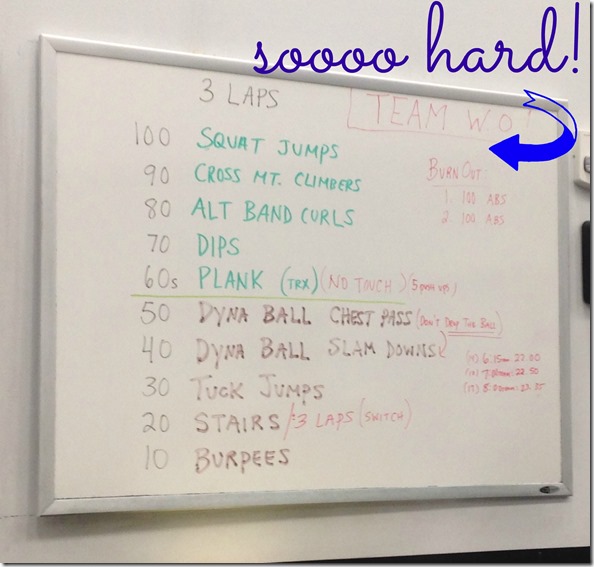 soooo hard!
3 LAPS
TEAM WO
100 SQUAT JUMPS
90 CROSS MT. CLIMBERS
80 ALT BAND CURLS
70 DIPS
60s PLANK (TRX) (NO TOUCH) (5 push ups)
50 DYNA BALL CHEST PASS (DON'T DROP THE BALL)
40 DYNA BALL SLAM DOWNS
30 TUCK JUMPS
20 STAIRS / 3 LAPS (SWITCH)
10 BURPEES
BURN OUT:
1. 100 ABS
2. 100 ABS
6:15am 22.00
22.50